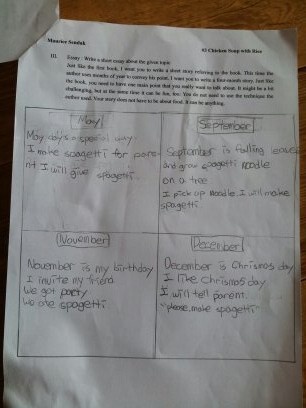 Maurice Sendak
#3 Chicken Soup with Rice
III. Essay: Write a short essay about the given topic
Just like the first book, I want you to write a short story referring to the book. This time the
author uses months of year to convey his point. I want you to write a four-month story. Just like
the book, you need to have one main point that you really want to talk about. It might be a bit
challenging, but at the same time it can be fun, too. You do not need to use the technique the
author used. Your story does not have to be about food. It can be anything.
May
May days a special day
I make spagetti for pare
nt I will give spagetti.
September
September is falling leaves
and grow spagetti noodle
on a tree
I pick up noodle I will make
spagetti.
November
November is my birthday
I invite my friend
We got party
We ate spagetti
December
December is Chrismas day
I like chrismas day
I will tell parent.
"please make spagetti"